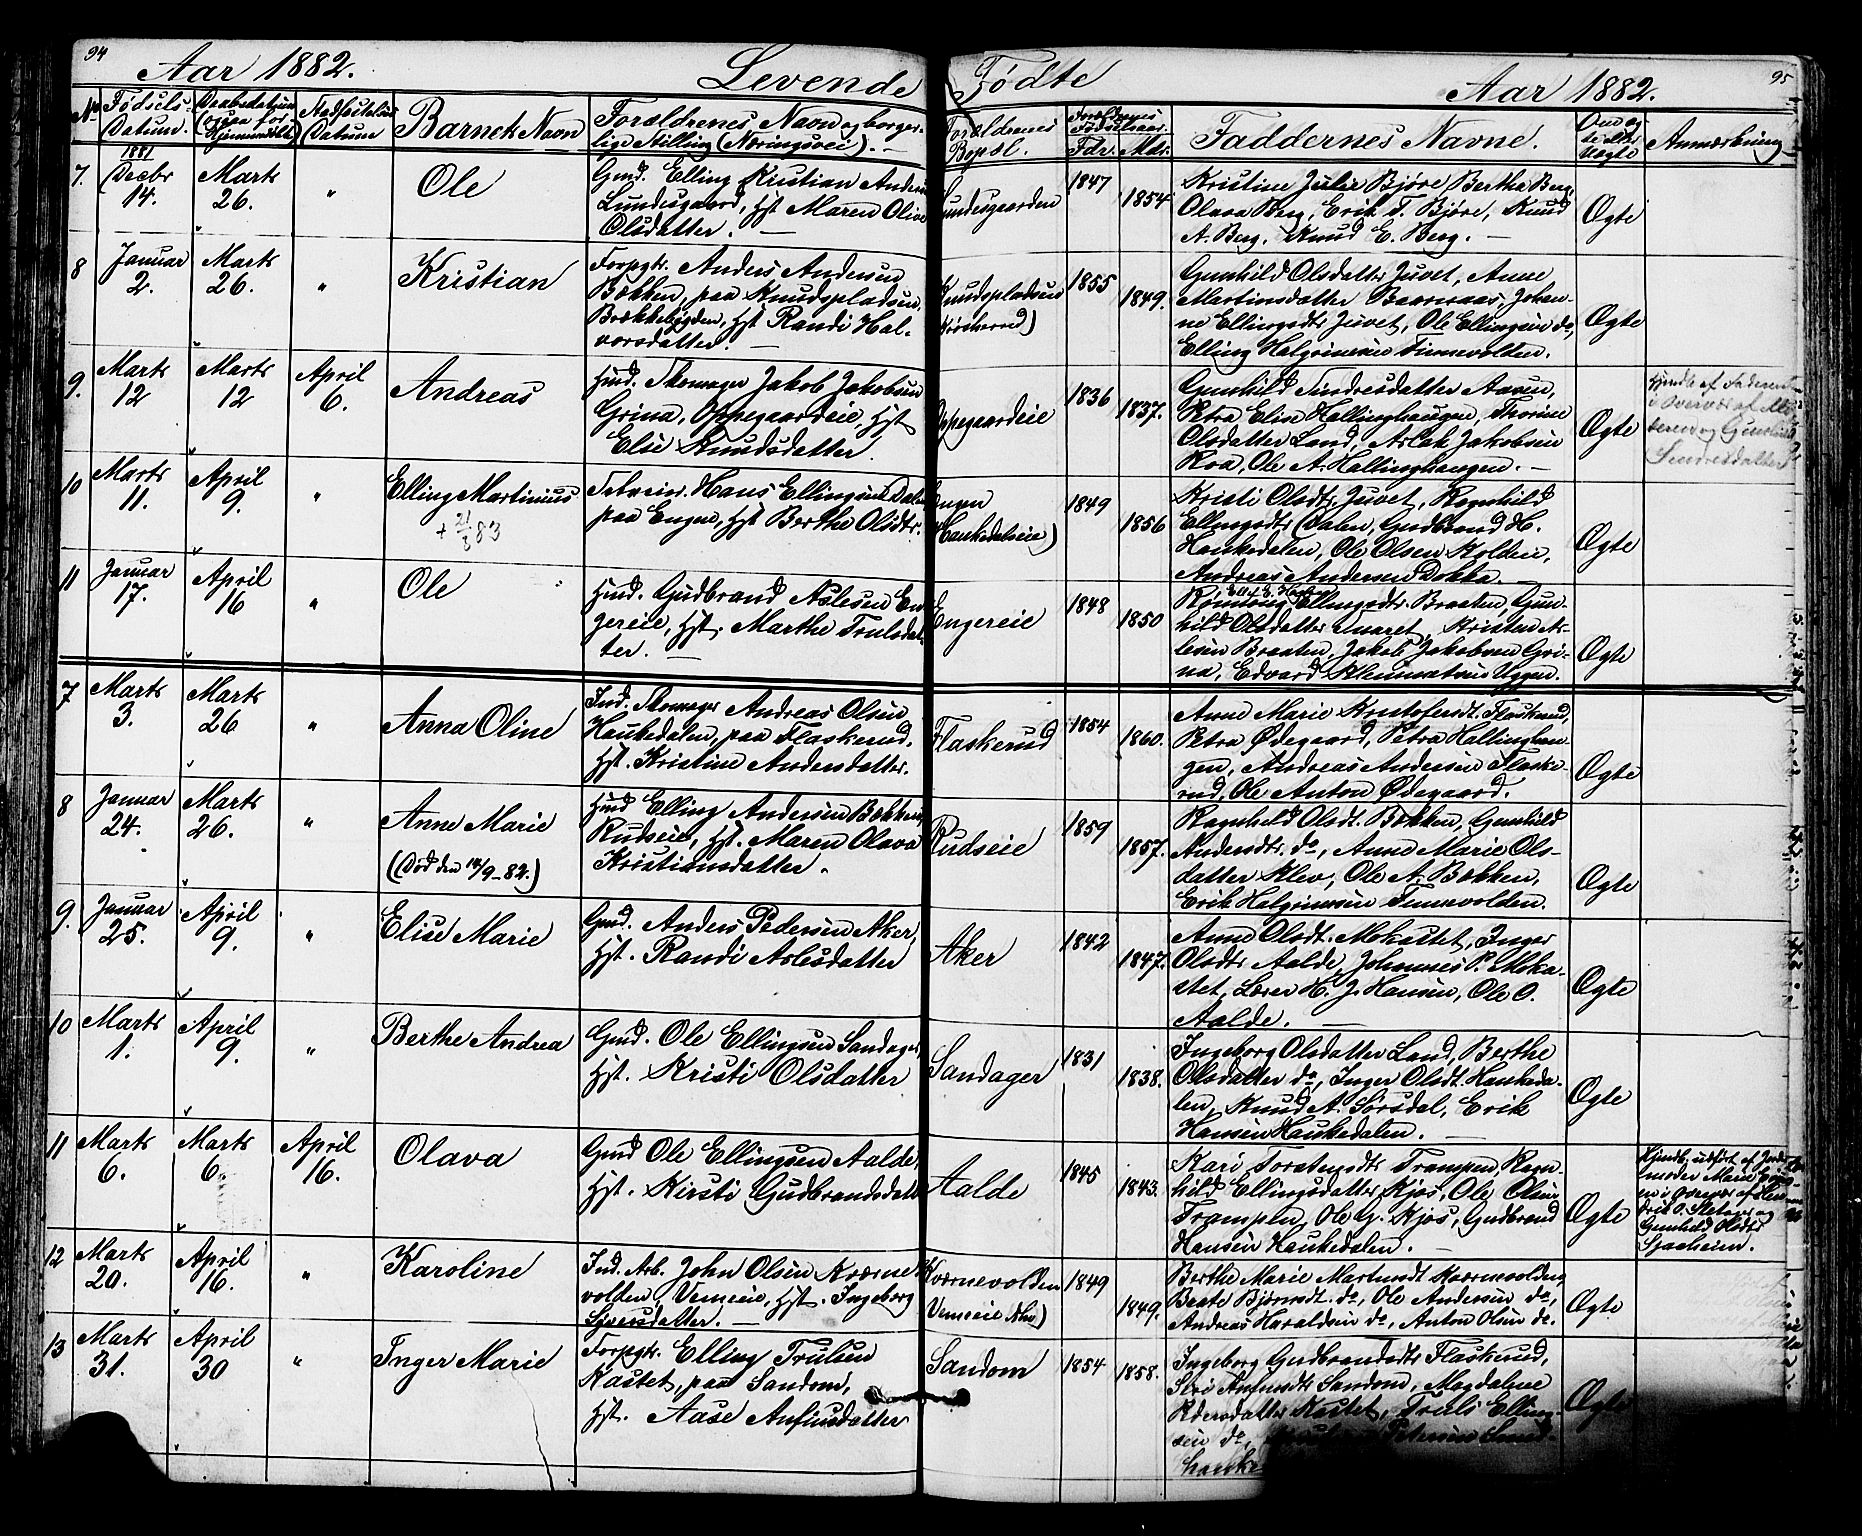 94
Aar 1882. Levende Fødte Aar 1882. 95
No Fødsels-Datum. Daabsdatum (ogsaa for Hjemmedøbt) Stadfæstelses Datum Barnets Navn Forældrenes Navn og borger-
lige Stilling (Næringsvei). Forældrenes Bopæl. Forældrenes Fødselsaar Fdr. Mdr. Faddernes Navne. Om ægte eller uægte Anmærkning
7. 1881 Decbr 14. Marts 26. " Ole
Gmd. Elling Kristian Anders
Lundesgaard, Hst Maren Oline
Olsdatter. —
Lundesgaarden 1847 1854
Kristine Julie Bjøre Bertha Berg
Olava Berg, Erik T. Bjøre, Knud
A. Berg, Knud E. Berg. —
Ægte
8 Januar 2. Marts 26. " Kristian
Forpgtr. Anders Andersen
Bækken, paa Knudspladsen,
Brækkebygden, Hst Randi Hal-
vorsdatter.
Knudspladsen 1855 1849.
Gunhild Olsdatter Juvet, Anne
Martinsdatter Baarnaas, Johan-
ne Ellingsdtr Juvet, Ole Ellingsen do,
Elling Halgrimsen Finnevolden.
Ægte
9. Marts 12 Marts 12 April 6. Andreas
Hmd. Skomager Jakob Jakobsen
Grina, Oppegaardeie, Hst
Elise Knudsdatter.
Oppegaardeie 1836 1837.
Gunhild Sindresdatter Aasen,
Petra Elise Hallinghaugen, Thorine
Olsdatter Land, Aslak Jakobsen
Roa, Ole A. Hallinghaugen. —
Ægte
Hjmdb. af Faderen
i Overvær af Mo-
deren og Gunhild
Sindresdatter
10 Marts 11. April 9. " Elling Martinius
+ 21/3 83
Selveier. Hans Ellingsen Dalen
paa Engen, Hst Berthe Olsdtr.
Engen
(Haukedalseie) 1849 1856
Kristi Olsdtr Juvet, Ragnhild
Ellingsdtr Dalen, Gudbrand H.
Haukedalen, Ole Olsen Kolden,
Andreas Andersen Dokka.
Ægte
11 Januar 17. April 16 " Ole
Hmd. Gudbrand Aslesen En-
gereie, Hst. Marthe Trulsdat-
ter. —
Engereie 1848 1850
Rønnaug Ellingsdtr. Braaten, Gun-
hild Olsdatter, Kristen As-
lesen Braaten, Jakob Jakobsen Gri-
na, Edvard Klemmetsen Uggen.
Ægte
7 Marts 3. Marts 26 " Anna Oline
Ind. Skomager Andreas Olsen
Haukedalen, paa Flaskerud,
Hst. Kristine Andersdatter.
Flaskerud 1854 1860.
Anne Marie Flaskerud,
Petra Ødegaard, Petra Hallinghau-
gen, Andreas Andersen Flaske-
rud, Ole Anton Ødegaard.
Ægte
8 Januar 24. Marts 26. " Anne Marie
(Død den 18/9-82.)
Hmd Elling Andersen Bækken,
Rudseie, Hst. Maren Olava
Kristiansdatter.
Rudseie 1859 1857.
Ragnhild Olsdt. Bækken, Gunhild
Andersdtr. do, Anne Marie Ols-
datter Klev, Ole A. Bækken,
Erik Halgrimsen Finnevolden.
Ægte
9. Januar 25. April 9. " Elise Marie
Gmd. Anders Pedersen Aker,
Hst. Randi Aslesdatter
Aker 1842 1847.
Anne Olsdt. Mokastet, Inger
Olsdtr Aalde, Johannes P. Moka-
stet, Lærer H. J. Hansen, Ole O.
Aalde. —
Ægte
10 Marts 1. April 9. " Berthe Andrea
Gmd. Ole Ellingsen Sandager,
Hst. Kristi Olsdatter
Sandager 1831 1838.
Ingeborg Olsdatter Land, Berthe
Olsdatter do, Inger Olsdt. Haukeda-
len, Knud A. Sørsdal, Erik
Hansen Haukedalen. —
Ægte
11 Marts 6. Marts 6. April 16. Olava
Gmd Ole Ellingsen Aalde,
Hst. Kirsti Gudbrandsdatt
Aalde 1845 1843.
Kari Torstensdtr Trampen, Ragn-
hild Ellingsdatter Kjos, Ole Olsen
Trampen, Ole G. Kjos, Gudbrand
Hansen Haukedalen. —
Ægte
Hjmdb. udført af Jorde-
moder Marie
i Overvær af
og
Gunhild Olsdtr
12 Marts 20. April 16. " Karoline
Ind. Arb. John Olsen Kværne-
volden, Vemeie, Hst. Ingeborg
Sjversdatter. —
Kværnevolden
Vemeie 1849 1849.
Berthe Marie Martinsdt Kværnevolden,
Beate Bjørnsdt. do, Ole Andersen do,
Andreas Haraldsen do, Anton Olsen do.
Ægte
13 Marts 31. April 30 " Inger Marie
Forpgtr. Elling Trulsen
Kastet, paa Sandom,
Hst. Aase Anfinsdatter
Sandom 1854 1858.
Ingeborg Gudbrandsdtr Flaskerud,
Siri Anfinsdtr Sandom, Magdalene
Pedersdatter Kastet, Truls Elling-
sen do, Petersen Sand-
Ægte